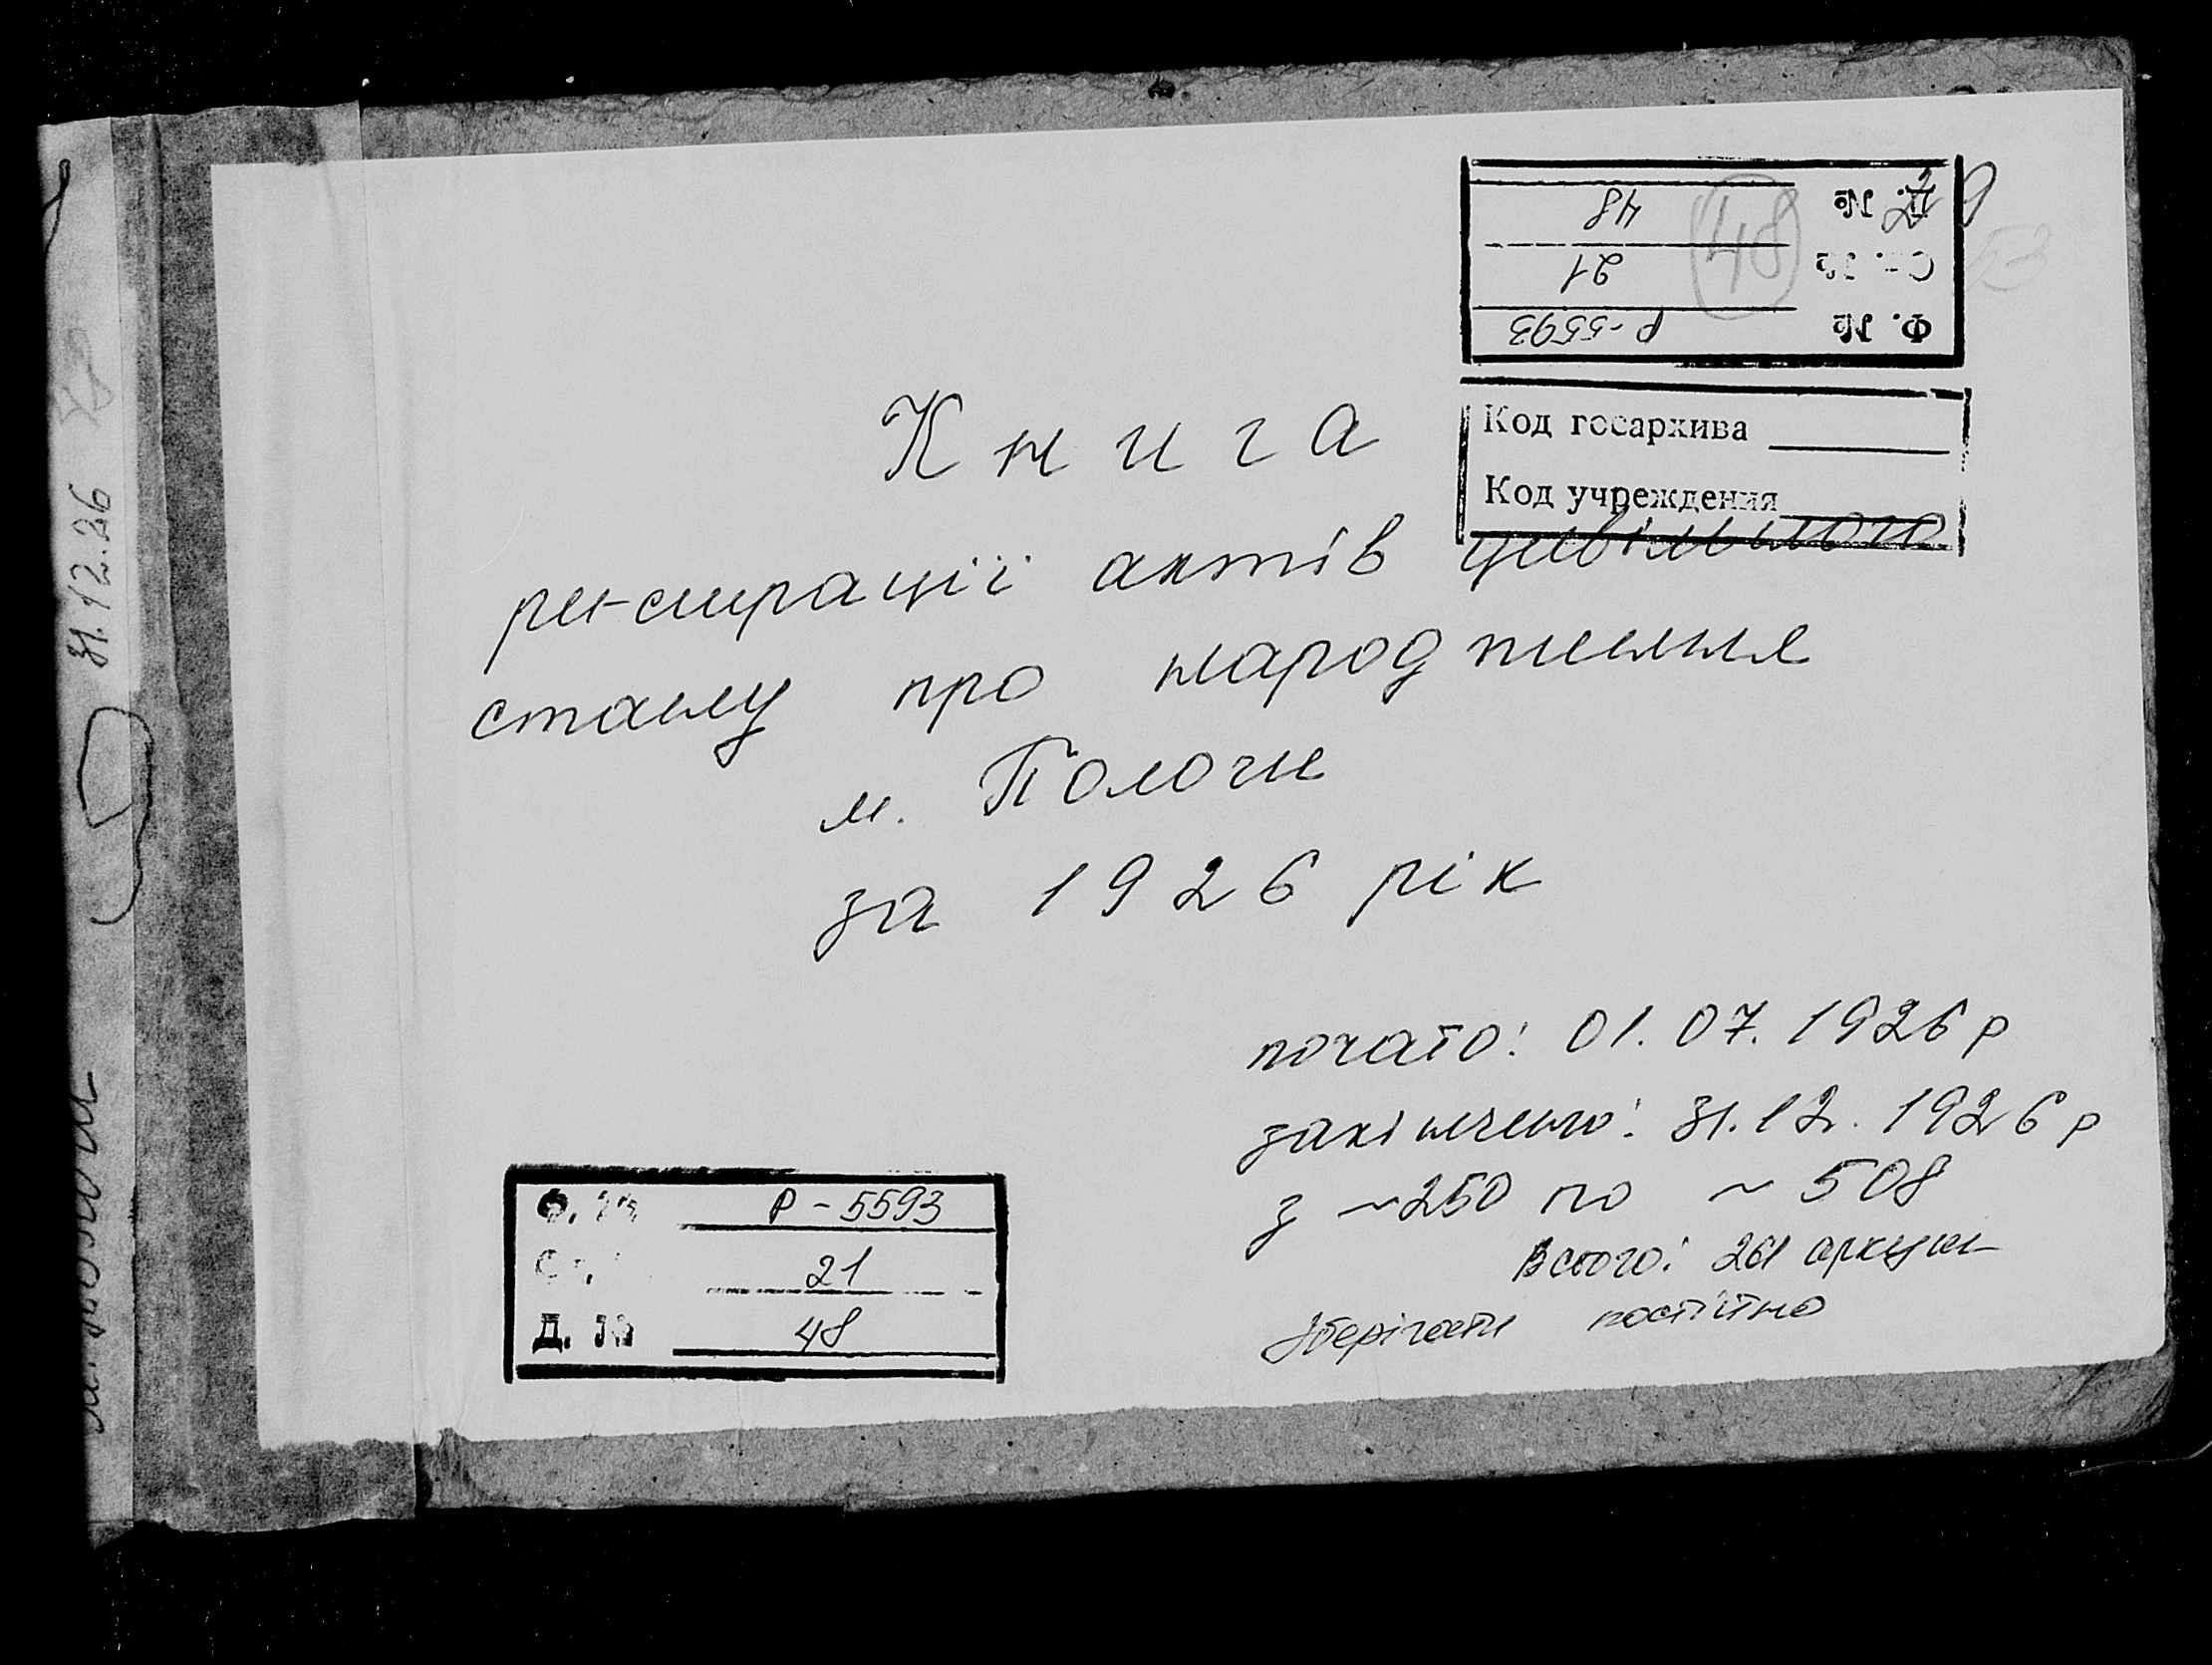 Ф. № Р-5593
Оп. № 21
Д. № 48
48
Код госархива
Код учреждения
Книга
реєстрації актів цивільного
стану про народження
м. Пологи
за 1926 рік
почато: 01.07.1926 р
закінчено: 31.12.1926 р
з ~250 по ~508
Всього: 261 аркуш
Зберігати постійно
Ф. № Р-5593
Оп. 21
Д. № 48
31.12.26